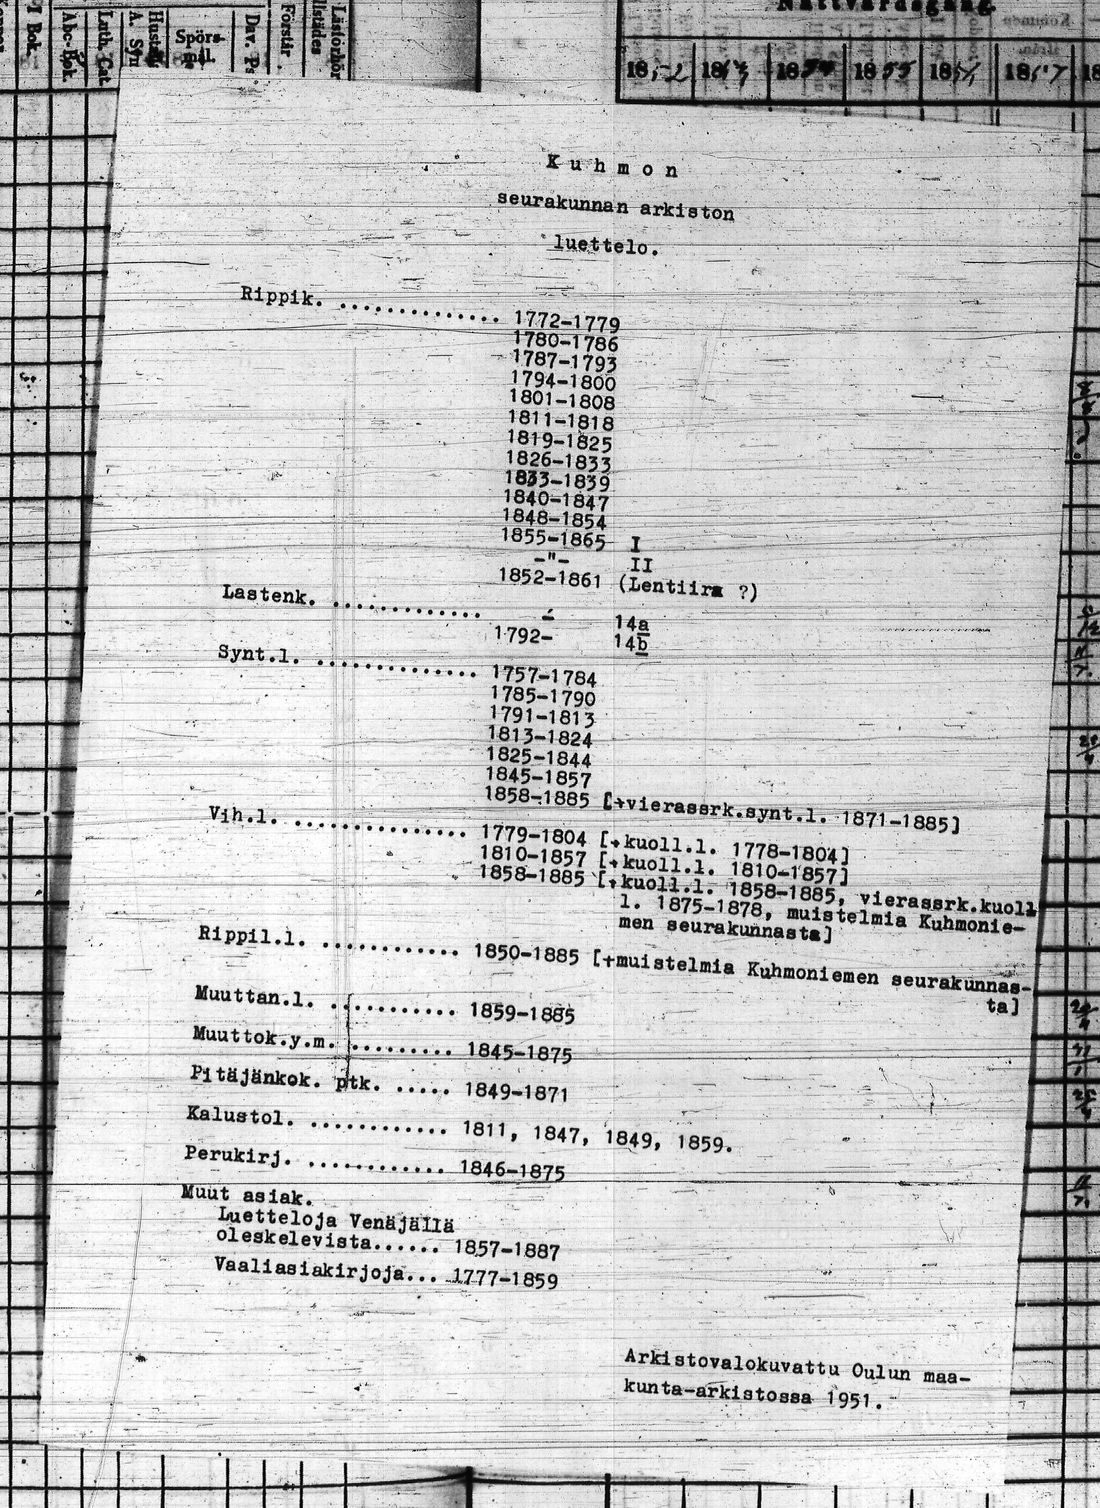 I Bok.
Abc-Bok.
Luth. Cat.
Hustafl.
A. Sy
Spörs-
mål.
Dav. Ps
Förstår.
Läsförhör
Nattvardsgång
1852 1853 1854 1855 1856 1857 18
Kuhmon
seurakunnan arkiston
luettelo.
Rippik. .............. 1772-1779
1780-1786
1787-1793
1794-1800
1801-1808
1811-1818
1819-1825
1826-1833
1833-1839
1840-1847
1848-1854
1855-1865 I
-"- II
1852-1861 (Lentiira ?)
Lastenk. ............. - 14a
1792- 14b
Synt.l. .............. 1757-1784
1785-1790
1791-1813
1813-1824
1825-1844
1845-1857
1858-1885 [+vierassrk.synt.l. 1871-1885]
Vih.l. ............... 1779-1804 [+kuoll.l. 1778-1804]
1810-1857 [+kuoll.l. 1810-1857]
1858-1885 [+kuoll.l. 1858-1885, vierassrk.kuoll.
l. 1875-1878, muistelmia Kuhmonie-
men seurakunnasta]
Rippil.l. ............ 1850-1885 [+muistelmia Kuhmoniemen seurakunnas-
ta]
Muuttan.l. ........... 1859-1885
Muuttok.y.m. ......... 1845-1875
Pitäjänkok. ptk. ..... 1849-1871
Kalustol. ............ 1811, 1847, 1849, 1859.
Perukirj. ............ 1846-1875
Muut asiak.
Luetteloja Venäjällä
oleskelevista...... 1857-1887
Vaaliasiakirjoja... 1777-1859
Arkistovalokuvattu Oulun maa-
kunta-arkistossa 1951.